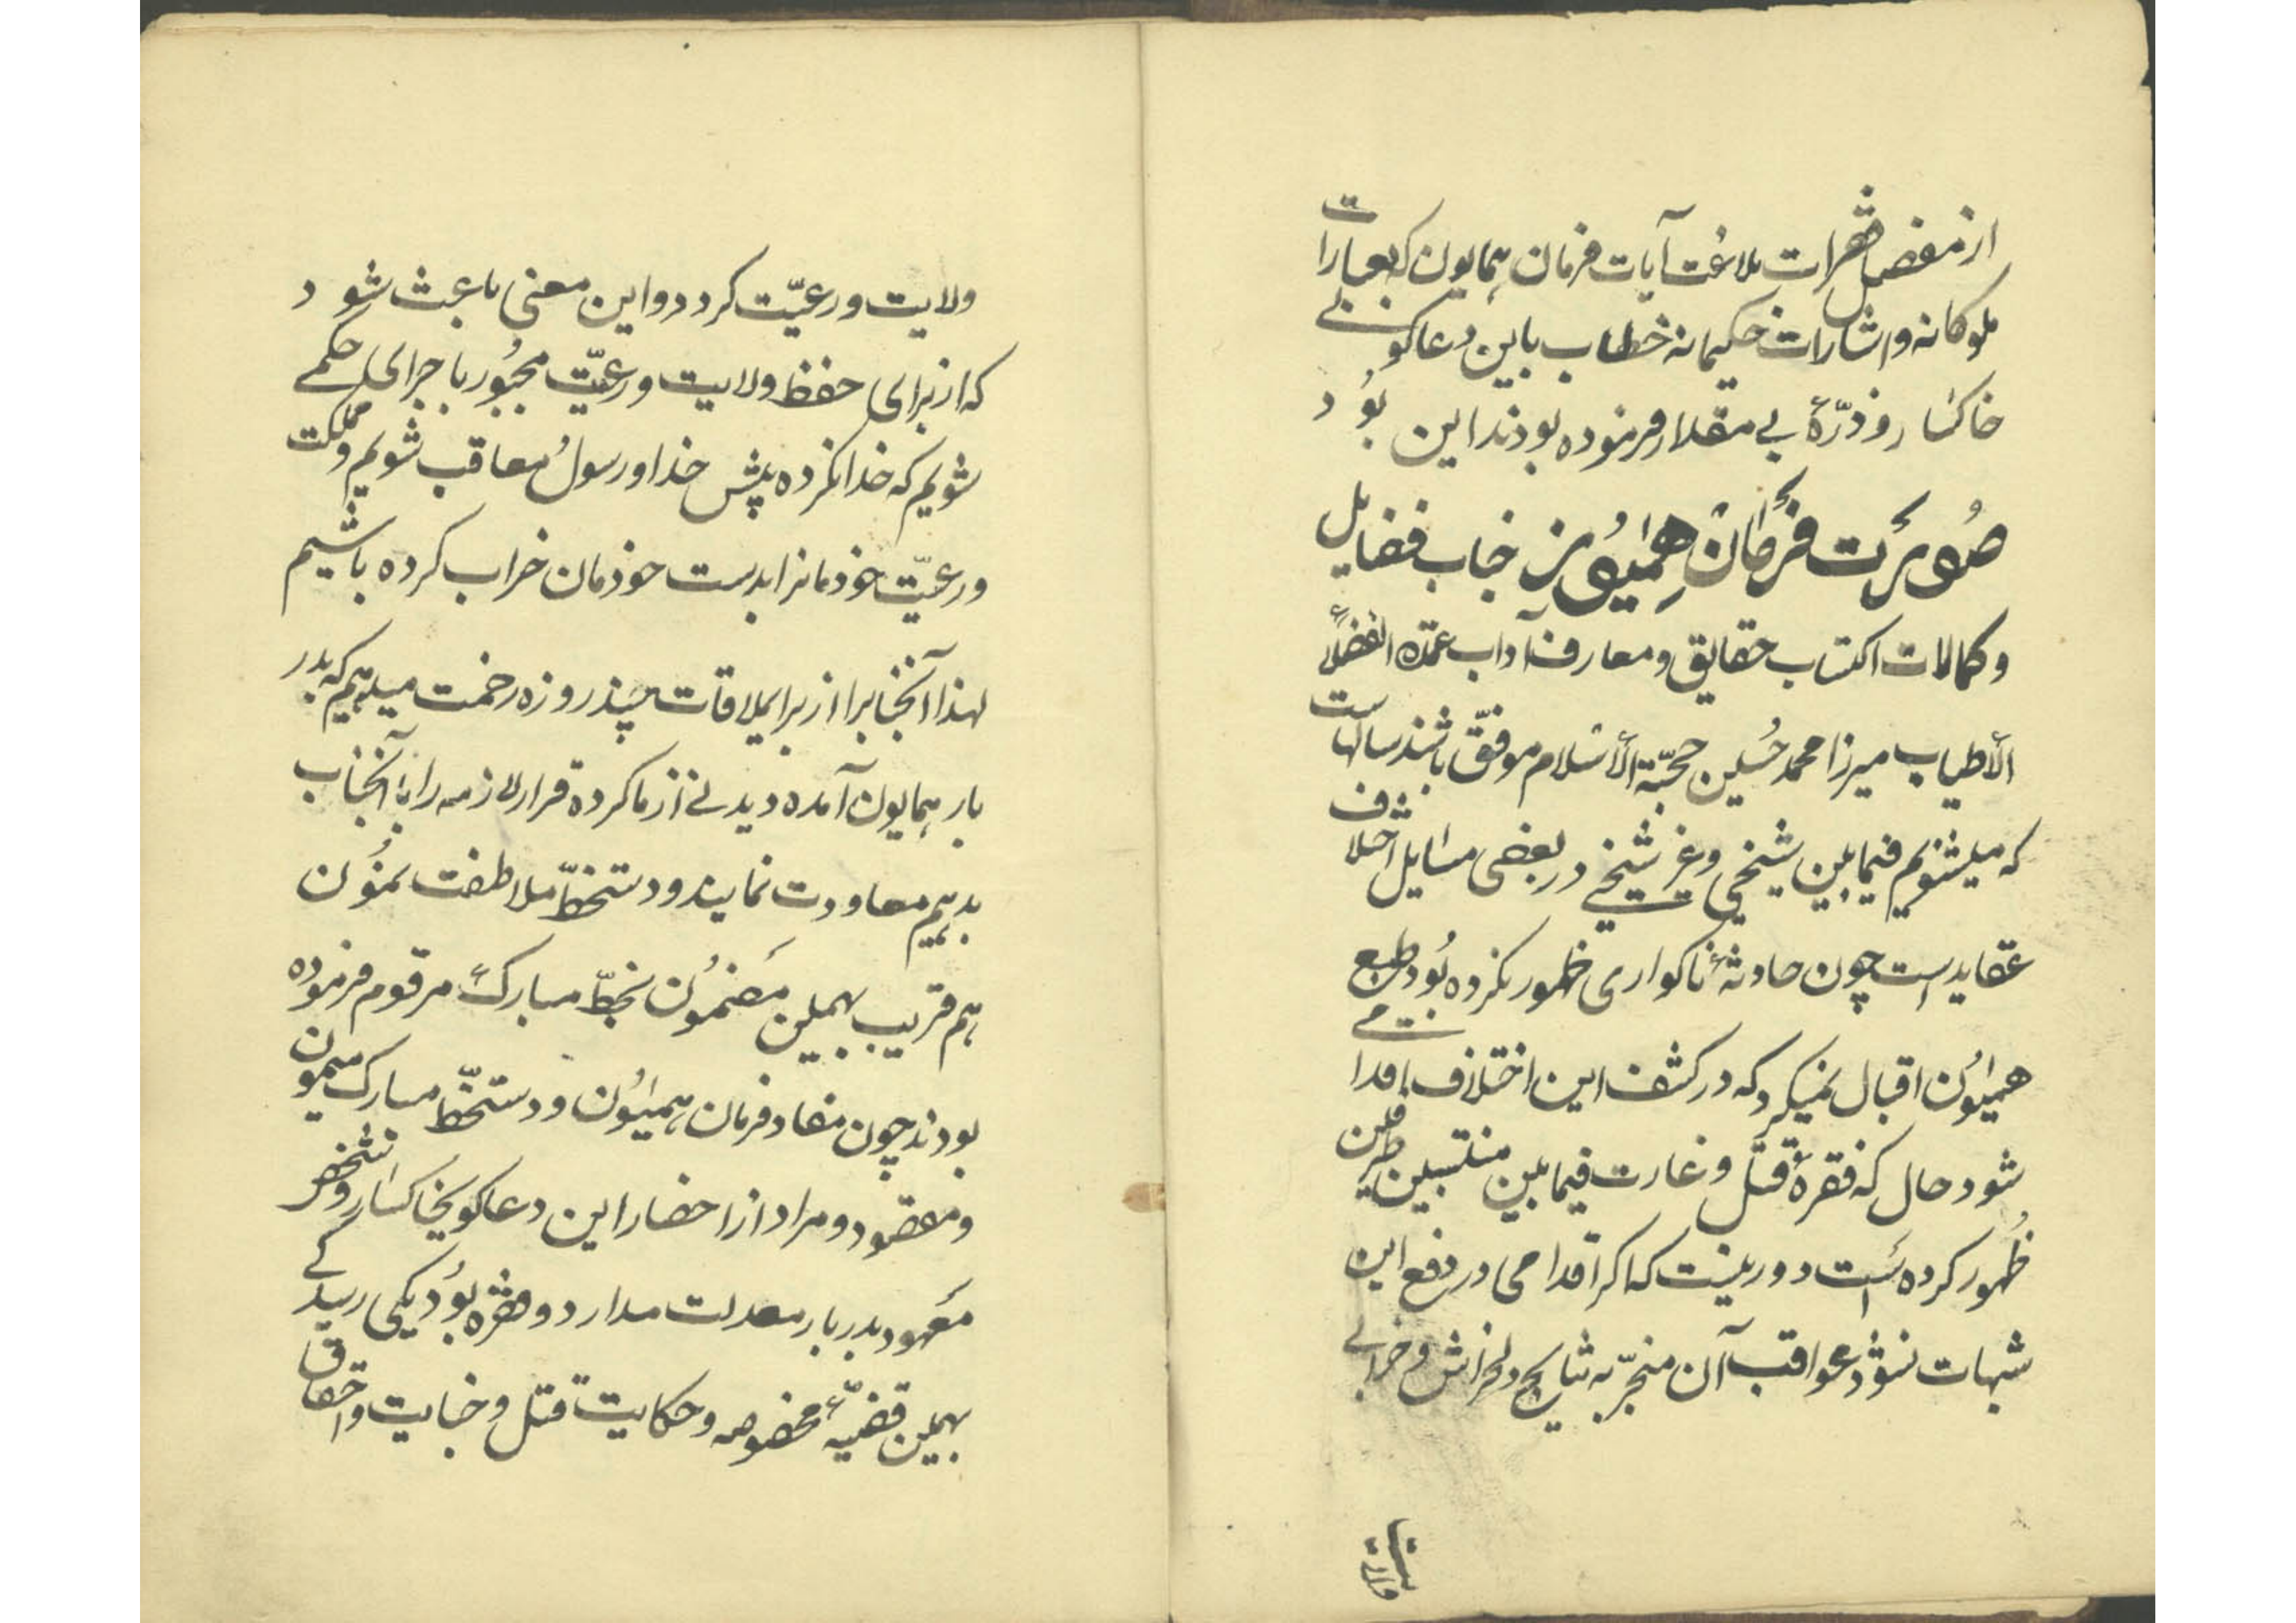 از مفصل فقرات بلاغت آیات فرمان همایون که بعبارات
ملوکانه و اشارات حکیمانه خطاب باین دعاکوی
خاکسار و ذرّهٔ بی مقدار فرموده بودند این بود
صورت فرمان همیون جناب فضایل
و کمالات اکتساب حقایق و معارف آداب عمدة الفضلاء
الأطیاب میرزا محمد حسین حجّة الأسلام موفّق باشند سالهاست
که میشنویم فیمابین شیخی و غیر شیخی در بعضی مسایل اختلاف
عقاید است چون حادثهٔ ناکواری ظهور نکرده بود طبع
همیون اقبال نمیکرد که در کشف این اختلاف اقدامی
شود حال که فقرهٔ قتل و غارت فیمابین منتسبین طرفین
ظهور کرده است دور نیست که اکر اقدامی در دفع این
شبهات نشود عواقب آن منجرّ به نتایج دلخراش و خرابی
ولایت
ولایت و رعیّت کردد و این معنی باعث شود
که از برای حفظ ولایت و رعیّت مجبور باجرای حکمی
شویم که خدا نکرده پیش خدا و رسول معاقب شویم و مملکت
و رعیّت خودمانرا بدست خودمان خراب کرده باشیم
لهذا آنجنابرا از برای ملاقات چند روزه زحمت میدهیم که بدر
بار همایون آمده دیدنی از ما کرده قرار لازمه را بآنجناب
بدهیم معاودت نمایند و دستخطّ ملاطفت نمون
هم قریب بهمین مضمون بخطّ مبارک مرقوم فرموده
بودند چون مفاد فرمان همیون و دستخطّ مبارک میمون
و مقصود و مراد از احضار این دعاکوی خاکسار و شخص
معهود بدربار معدلت مدار دو فقره بود یکی رسیدکی
بهمین قضیّهٔ مخصوصه و حکایت قتل و جنایت و احقاق